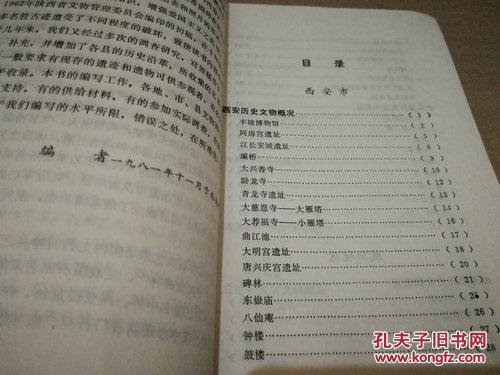 识，增强爱国主义
1962年陕西省文物管理委员会编印的初稿，在
多名胜古迹遭受了不同程度的破坏，致使该书
几年来，我们又经过多次的调查研究，对原
补充，并增加了各县的历史沿革，所收集的
一般要求有现存的遗迹和遗物可供参观者，
予收录。本书的编写工作，各地、市、县文物
支持，有的供给材料，有的参加实际调查，
我们编写的水平所限，错误之处，在所难免
编 者 一九八一年十一月于
目录
西安市
西安历史文物概况 （1）
半坡博物馆
阿房宫遗址
汉长安城遗址
灞桥 （9）
大兴善寺 （10）
卧龙寺 （12）
青龙寺遗址 （13）
大慈恩寺——大雁塔 （14）
大荐福寺——小雁塔 （16）
曲江池 （17）
大明宫遗址 （18）
唐兴庆宫遗址 （20）
碑林 （21）
东嶽庙 （25）
八仙庵 （26）
钟楼 （27）
鼓楼 28
孔夫子旧书网
www.kongfz.com